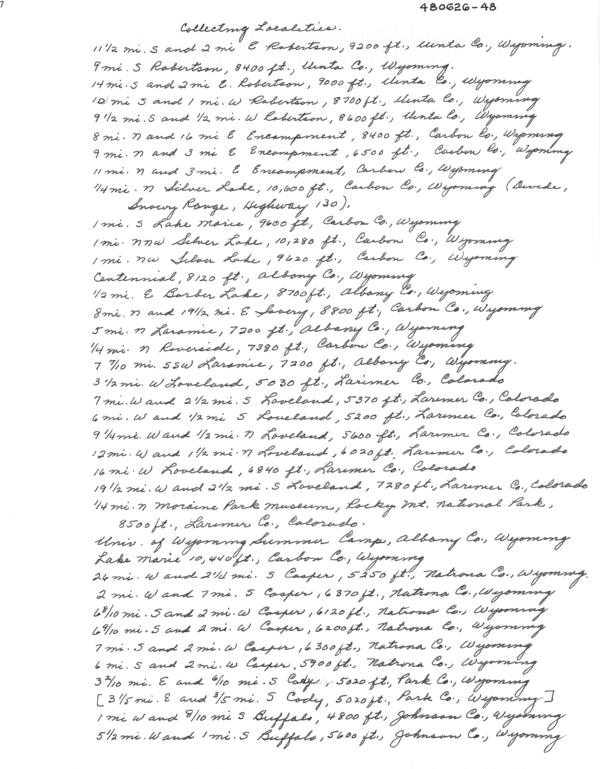 7
480626-48
Collecting Localities.
11 1/2 mi. S and 2 mi E Robertson, 9200 ft., Uinta Co., Wyoming.
9 mi. S Robertson, 8400 ft., Uinta Co., Wyoming.
14 mi. S and 2 mi E. Robertson, 9000 ft., Uinta Co., Wyoming
10 mi S and 1 mi. W Robertson, 8700 ft., Uinta Co., Wyoming
9 1/2 mi. S and 1/2 mi. W Robertson, 8600 ft., Uinta Co., Wyoming
8 mi. N and 16 mi E Encampment, 8400 ft., Carbon Co., Wyoming
9 mi. N and 3 mi E Encampment, 6500 ft., Carbon Co., Wyoming
11 mi. N and 3 mi. E Encampment, Carbon Co., Wyoming
1/4 mi. N Silver Lake, 10,600 ft., Carbon Co., Wyoming (Divide,
Snowy Range, Highway 130).
1 mi. S Lake Marie, 9600 ft, Carbon Co., Wyoming
1 mi. NNW Silver Lake, 10,280 ft., Carbon Co., Wyoming
1 mi. NW Silver Lake, 9620 ft., Carbon Co., Wyoming
Centennial, 8120 ft., Albany Co., Wyoming
1/2 mi. E Barber Lake, 8700 ft., Albany Co., Wyoming
8 mi. N and 19 1/2 mi. E Savery, 8800 ft., Carbon Co., Wyoming
5 mi. N Laramie, 7200 ft., Albany Co., Wyoming
1/4 mi. N Riverside, 7380 ft., Carbon Co., Wyoming
7 7/10 mi. SSW Laramie, 7200 ft., Albany Co., Wyoming.
3 1/2 mi. W Loveland, 5030 ft., Larimer Co., Colorado
7 mi. W and 2 1/2 mi. S Loveland, 5370 ft., Larimer Co., Colorado
6 mi. W and 1/2 mi S Loveland, 5200 ft., Larimer Co., Colorado
9 1/4 mi. W and 1/2 mi. N Loveland, 5600 ft., Larimer Co., Colorado
12 mi. W and 1 1/2 mi. N Loveland, 6020 ft. Larimer Co., Colorado
16 mi. W Loveland, 6840 ft., Larimer Co., Colorado
19 1/2 mi. W and 2 1/2 mi. S Loveland, 7280 ft., Larimer Co., Colorado
1/4 mi. N Moraine Park Museum, Rocky Mt. National Park,
8500 ft., Larimer Co., Colorado.
Univ. of Wyoming Summer Camp, Albany Co., Wyoming
Lake Marie 10,440 ft., Carbon Co., Wyoming
26 mi. W and mi. S Casper, 5250 ft., Natrona Co., Wyoming.
2 mi. W and 7 mi. S Casper, 6370 ft., Natrona Co., Wyoming
6 8/10 mi. S and 2 mi. W Casper, 6120 ft., Natrona Co., Wyoming
6 9/10 mi. S and 2 mi. W Casper, 6200 ft., Natrona Co., Wyoming
7 mi. S and 2 mi. W Casper, 6300 ft., Natrona Co., Wyoming
6 mi. S and 2 mi. W Casper, 5900 ft., Natrona Co., Wyoming
3 2/10 mi. E and 6/10 mi. S Cody, 5020 ft., Park Co., Wyoming
[3 1/5 mi. E and 3/5 mi. S Cody, 5020 ft., Park Co., Wyoming]
1 mi W and 8/10 mi S Buffalo, 4800 ft., Johnson Co., Wyoming
5 1/2 mi. W and 1 mi. S Buffalo, 5600 ft., Johnson Co., Wyoming